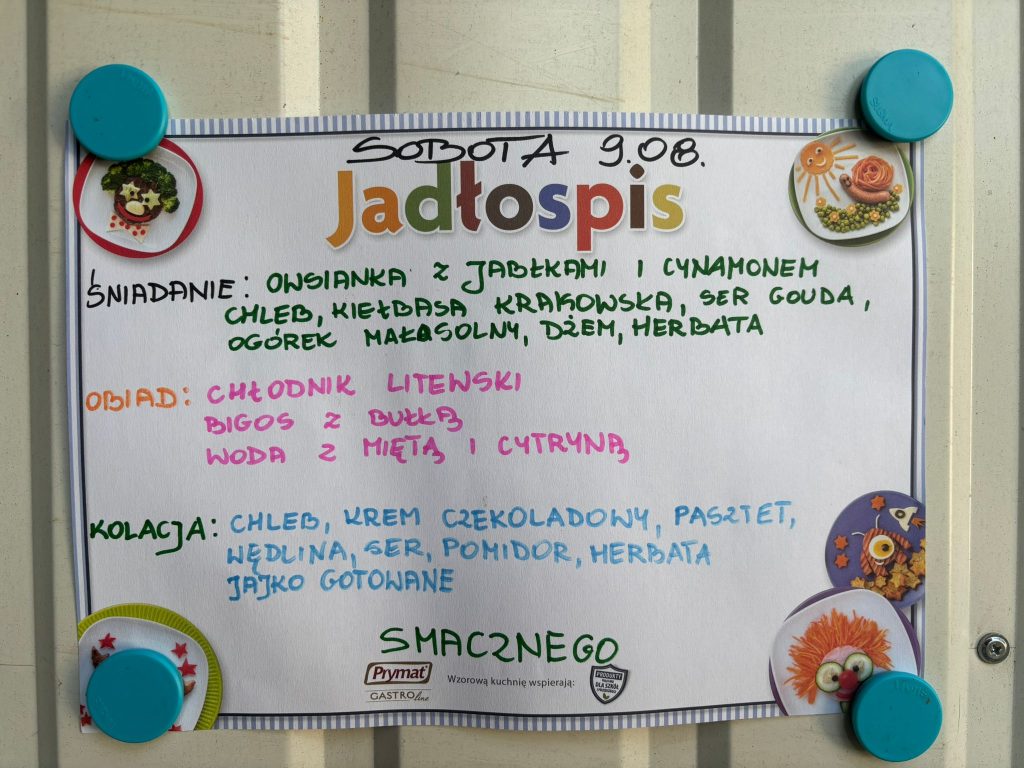 SOBOTA 9.08.
Jadłospis
ŚNIADANIE: OWSIANKA Z JABŁKAMI I CYNAMONEM
CHLEB, KIEŁBASA KRAKOWSKA, SER GOUDA,
OGÓREK MAŁOSOLNY, DŻEM, HERBATA
OBIAD: CHŁODNIK LITEWSKI
BIGOS Z BUŁKĄ
WODA Z MIĘTĄ I CYTRYNĄ
KOLACJA: CHLEB, KREM CZEKOLADOWY, PASZTET,
WĘDLINA, SER, POMIDOR, HERBATA
JAJKO GOTOWANE
SMACZNEGO
Prymat
GASTRO line
Wzorową kuchnię wspierają:
PRODUKTY
DLA SZKÓŁ